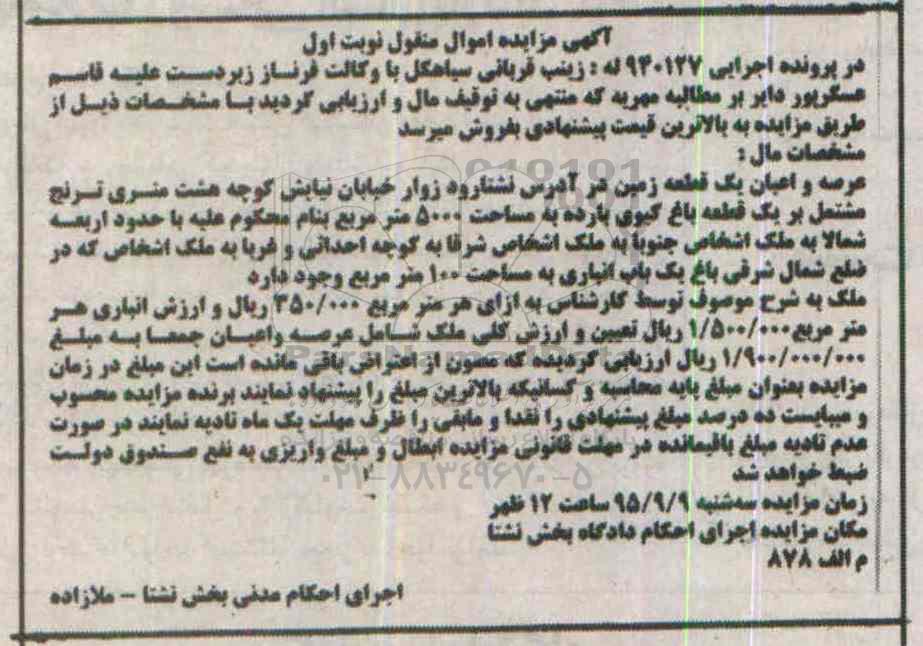 آگهی مزایده اموال منقول نوبت اول
در پرونده اجرایی ۹۴۰۱۲۷ له : زینب قربانی سیاهکل با وکالت فرناز زبردست علیه قاسم
عسگرپور دایر بر مطالبه مهریه که منتهی به توقیف مال و ارزیابی گردید با مشخصات ذیل از
طریق مزایده به بالاترین قیمت پیشنهادی بفروش میرسد
مشخصات مال :
عرصه و اعیان یک قطعه زمین در آدرس نشتارود زوار خیابان نیایش کوچه هشت متری ترنج
مشتمل بر یک قطعه باغ کیوی بارده به مساحت ۵۰۰۰ متر مربع بنام محکوم علیه با حدود اربعه
شمالا به ملک اشخاص جنوباً به ملک اشخاص شرقا به کوچه احداثی و غربا به ملک اشخاص که در
ضلع شمال شرقی باغ یک باب انباری به مساحت ۱۰۰ متر مربع وجود دارد
ملک به شرح موصوف توسط کارشناس به ازای هر متر مربع ۳۵۰/۰۰۰ ریال و ارزش انباری هر
متر مربع ۱/۵۰۰/۰۰۰ ریال تعیین و ارزش کلی ملک شامل عرصه واعیان جمعا به مبلغ
۱/۹۰۰/۰۰۰/۰۰۰ ریال ارزیابی گردیده که مصون از اعتراض باقی مانده است این مبلغ در زمان
مزایده بعنوان مبلغ پایه محاسبه و کسانیکه بالاترین مبلغ را پیشنهاد نمایند برنده مزایده محسوب
و میبایست ده درصد مبلغ پیشنهادی را نقدا و مابقی را ظرف مهلت یک ماه تادیه نمایند در صورت
عدم تادیه مبلغ باقیمانده در مهلت قانونی مزایده ابطال و مبلغ واریزی به نفع صندوق دولت
ضبط خواهد شد
زمان مزایده سه‌شنبه ۹۵/۹/۹ ساعت ۱۲ ظهر
مکان مزایده اجرای احکام دادگاه بخش نشتا
م الف ۸۷۸
اجرای احکام مدنی بخش نشتا - ملازاده
۰۲۱-۸۸۳۴۹۶۷۰-۵